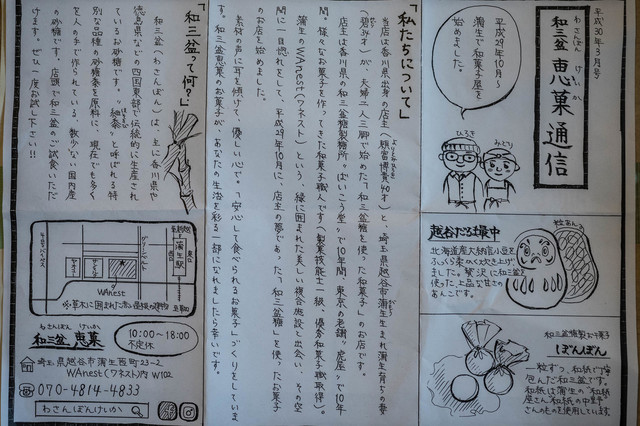 平成30年3月号
わさんぼん けいか
和三盆 恵菓 通信
平成29年10月〜
蒲生で和菓子屋を
始めました。
ひろき
みどり
越谷だるま最中
粒あん
北海道産大納言小豆を
ふっくら柔めく炊き上げ
ました。贅沢に和三盆を
使った、上品な甘さの
あんこです。
和三盆糖製お干菓子
ぼんぼん
一粒ずつ、和紙で丁寧に
包んだ和三盆です。
和紙は蒲生の「和紙
屋さん 和紙の中野」
さんのものを使用しています
「私たちについて」
当店は香川県出身の店主（頼富博貴40才）と、埼玉県越谷市蒲生生まれ蒲生育ちの妻
（碧33才）が、夫婦二人三脚で始めた「和三盆糖を使った和菓子」のお店です。
店主は香川県の和三盆糖製糖所「ばいこう堂」で10年間、東京の老舗「虎屋」で10年
間、様々なお菓子を作ってきた和菓子職人です（製菓技能士一級、優秀和菓子職取得）。
蒲生のWAnest（ワネスト）という、緑に囲まれた美しい複合施設と出会い、その空
間に一目惚れをして、平成29年10月に、店主の夢であった、「和三盆糖」を使ったお菓子
のお店を始めました。
素材の声に耳を傾けて、優しい心で、「安心して食べられるお菓子」づくりをしていま
す。和三盆恵菓のお菓子が、あなたの生活を彩る一部になれましたら幸いです。
「和三盆って何？」
和三盆（わさんぼん）は、主に香川県や
徳島県などの四国東部で伝統的に生産され
ているお砂糖です。"細黍"と呼ばれる特
別な品種の砂糖黍を原料に、現在でも多く
を人の手で作られている、数少ない国内産
の砂糖です。店頭で和三盆のご試食いただ
けます。ぜひ一度お試し下さい!!
蒲生駅
東口
WAnest
わさんぼん けいか
和三盆 恵菓
10:00〜18:00
不定休
埼玉県越谷市蒲生西町23-2
WAnest（ワネスト）内 W102
070-4814-4833
わさんぼんけいか